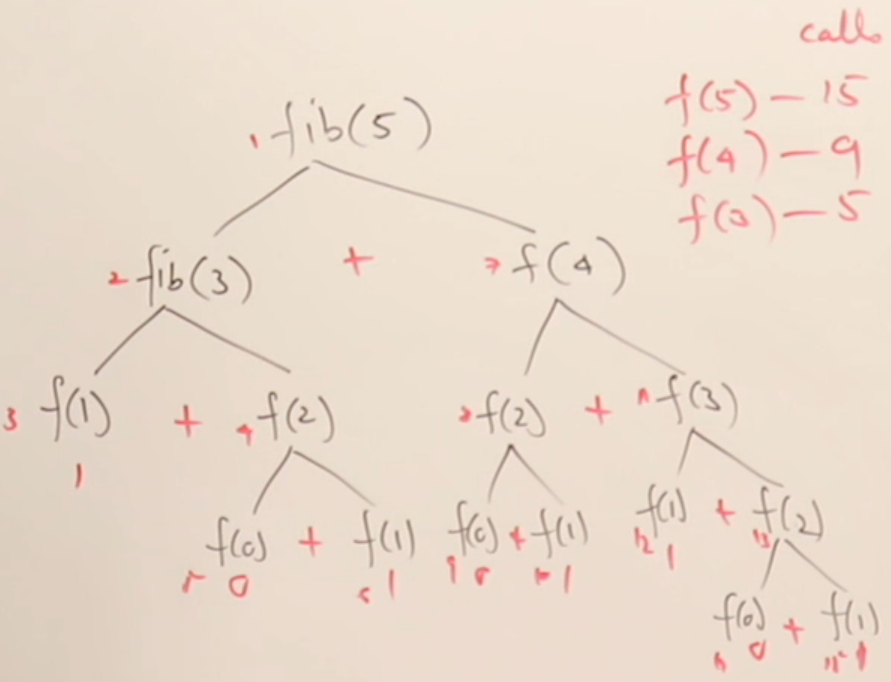 calls
f(5) - 15
f(4) - 9
f(3) - 5
1 fib(5)
2 fib(3) + 7 f(4)
3 f(1) + 4 f(2) f(2) + f(3)
1
f(0) + f(1) f(0) + f(1) f(1) + f(2)
0 1 10 1 12 1 13
f(0) + f(1)
0 1